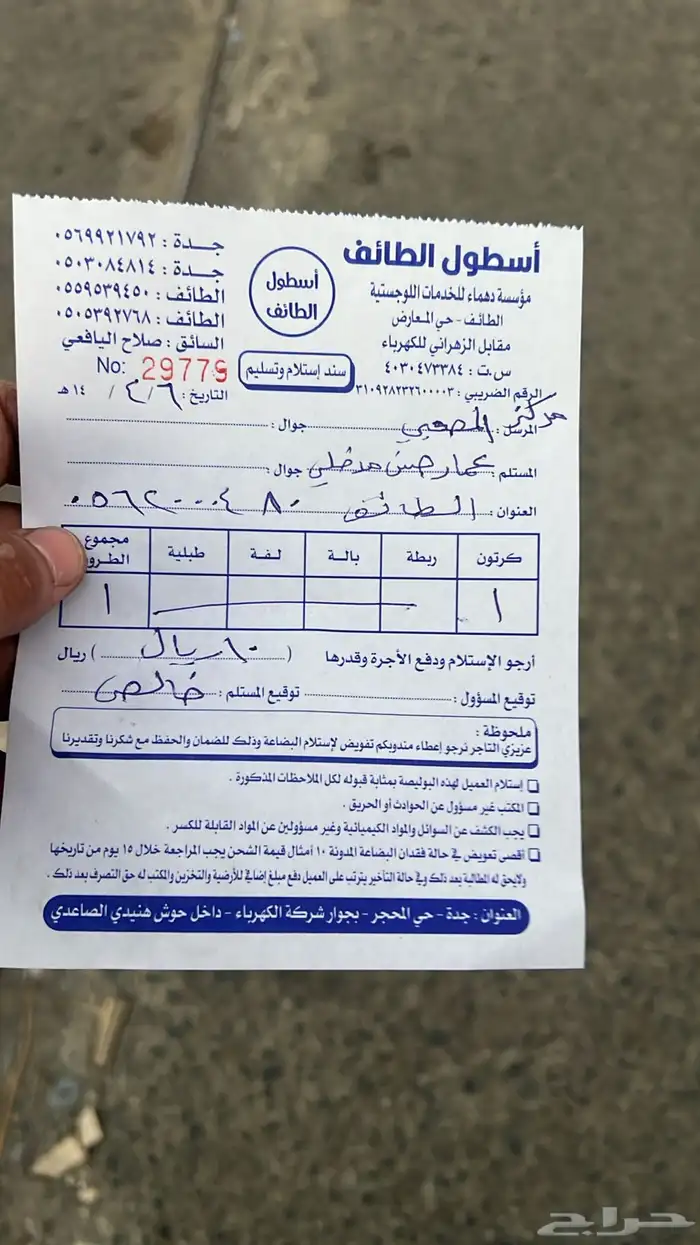 أسطول الطائف
مؤسسة دهماء للخدمات اللوجستية
الطائف - حي المعارض
مقابل الزهراني للكهرباء
س.ت : ٤٠٣٠٤٧٣٣٨٤
الرقم الضريبي : ٣١٠٩٢٨٢٣٢٦٠٠٠٠٣
أسطول
الطائف
سند إستلام وتسليم
جـدة : ٠٥٦٩٩٢١٧٩٢
جـدة : ٠٥٠٣٠٨٤٨١٤
الطائف : ٠٥٥٩٥٣٩٤٥٠
الطائف : ٠٥٠٥٣٩٢٧٦٨
السائق : صلاح اليافعي
No: 29779
التاريخ : ٦ / ٤ / ١٤ هـ
المرسل : مركز المصعبي جوال :
المستلم : عمار حسن مدخلي جوال :
العنوان : الطائف ٠٥٦٢٠٠٠٤٨٠
كرتون ربطة بالـة لـفـة طبلية مجموع الطرود
١ ١
أرجو الإستلام ودفع الأجرة وقدرها ( ١٠ ريال ) ريال
توقيع المسؤول : توقيع المستلم : خالص
ملحوظة :
عزيزي التاجر نرجو إعطاء مندوبكم تفويض لإستلام البضاعة وذلك للضمان والحفظ مع شكرنا وتقديرنا
إستلام العميل لهذه البوليصة بمثابة قبوله لكل الملاحظات المذكورة .
المكتب غير مسؤول عن الحوادث أو الحريق .
يجب الكشف عن السوائل والمواد الكيميائية وغير مسؤولين عن المواد القابلة للكسر .
أقصى تعويض في حالة فقدان البضاعة المدونة ١٠ أمثال قيمة الشحن يجب المراجعة خلال ١٥ يوم من تاريخها
ولايحق له المطالبة بعد ذلك وفي حالة التأخير يترتب على العميل دفع مبلغ إضافي للأرضية والتخزين والمكتب له حق التصرف بعد ذلك .
العنوان : جدة - حي المحجر - بجوار شركة الكهرباء - داخل حوش هنيدي الصاعدي
حراج